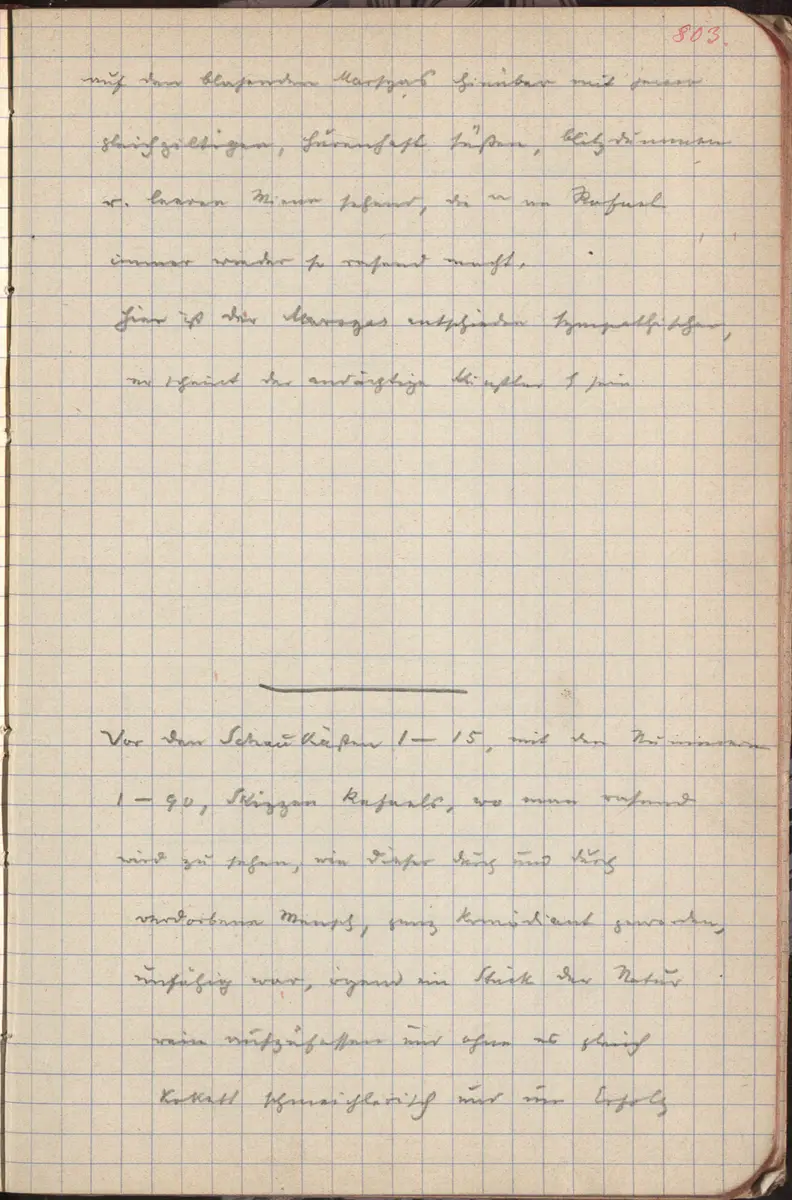 803.
auf den blasenden Marsyas hinüber mit jener
gleichgiltigen, hurenhaft süßen, blitzdummen
u. leeren Miene sehend, die an Rafael
immer wieder so rasend macht.
Hier ist der Marsyas entschieden sympathischer,
er scheint der andächtige Künstler z sein
Vor den Schaukästen 1 — 15, mit den Nummern
1 — 90, Skizzen Rafaels, wo man rasend
wird zu sehen, wie dieser durch und durch
verdorbene Mensch, ganz Komödiant geworden,
unfähig war, irgend ein Stück der Natur
rein aufzufassen und ohne es gleich
kokett schmeichlerisch und um Erfolg